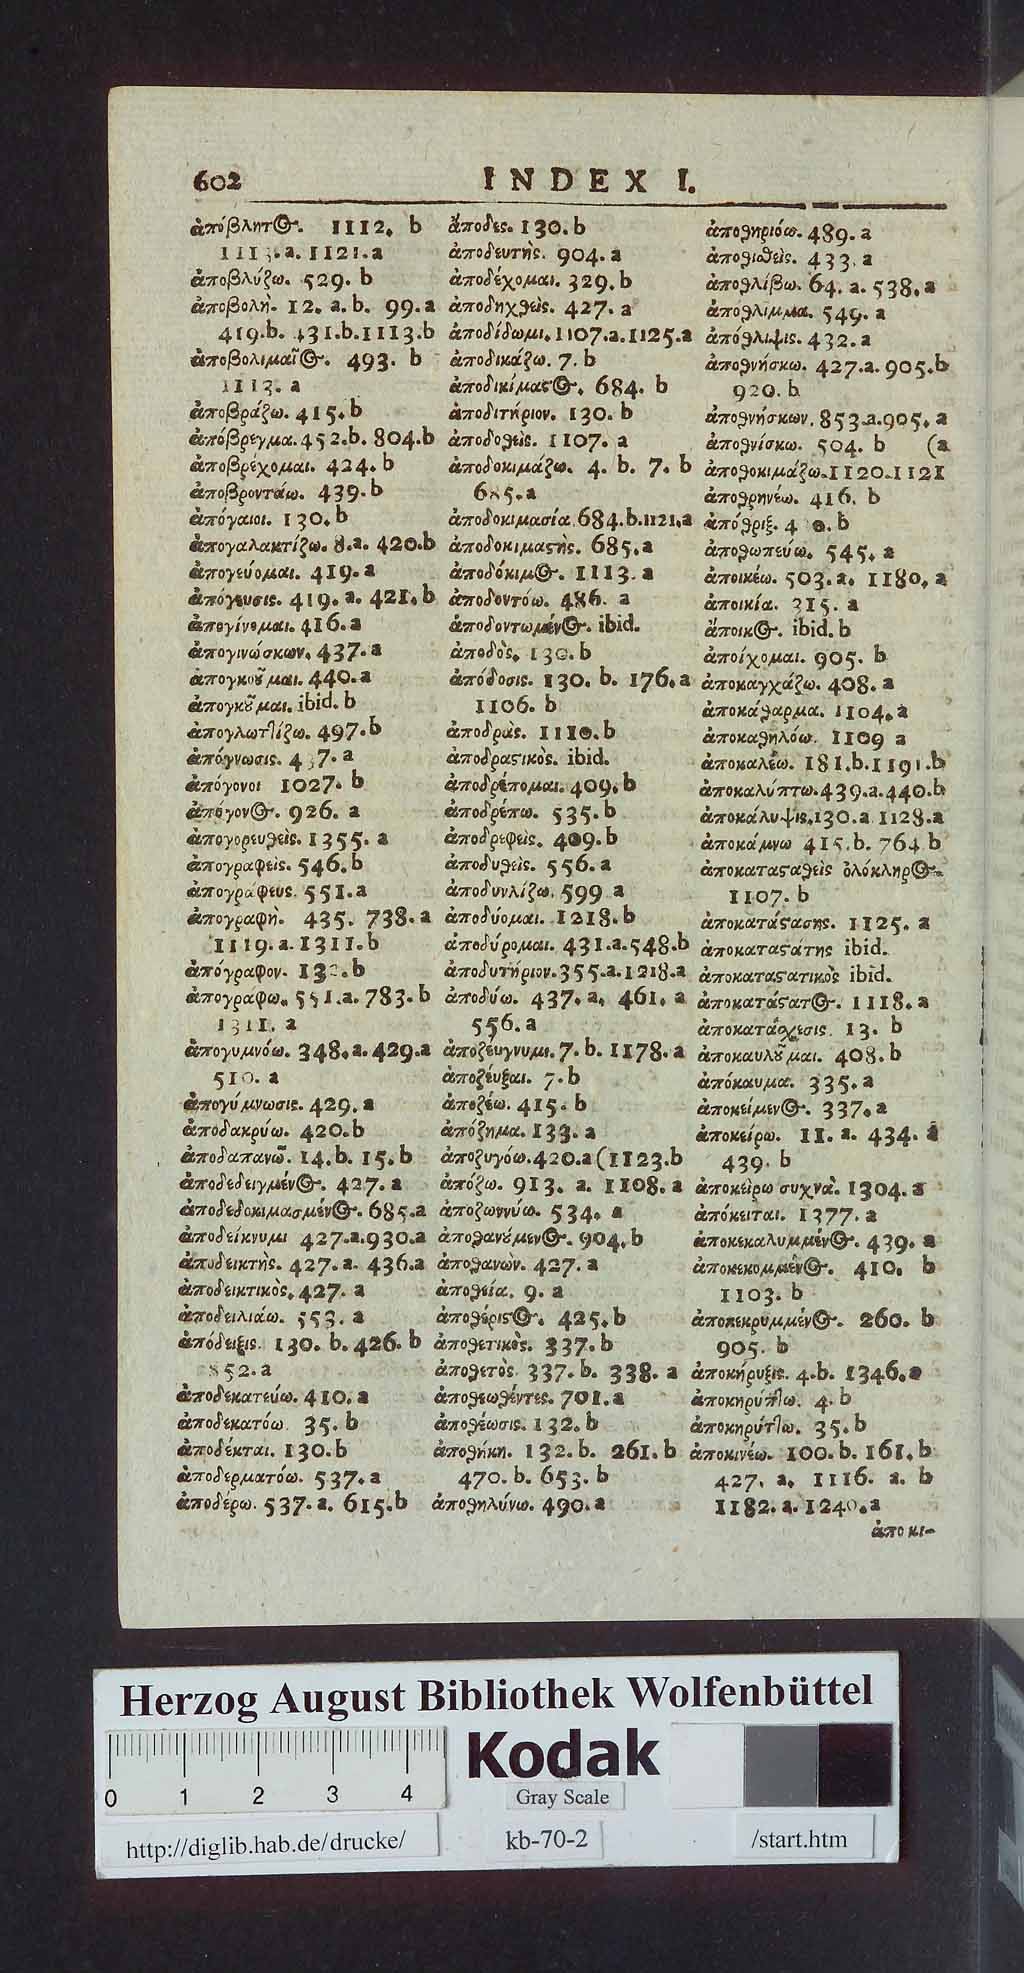 602 INDEX I.
ἀπόβλητος. 1112. b
1113.a. 1121.a
ἀποβλύζω. 529. b
ἀποβολή. 12. a. b. 99.a
419.b. 431.b.1113.b
ἀποβολιμαῖος. 493. b
1113. a
ἀποβράζω. 415.b
ἀπόβρεγμα.452.b. 804.b
ἀποβρέχομαι. 424.b
ἀποβροντάω. 439.b
ἀπόγαιοι. 130.b
ἀπογαλακτίζω. 8.a. 420.b
ἀπογεύομαι. 419.a
ἀπόγευσις. 419. a. 421. b
ἀπογίνομαι. 416.a
ἀπογινώσκων. 437.a
ἀπογκοῦμαι. 440.a
ἀπογκοῦμαι. ibid. b
ἀπογλωττίζω. 497.b
ἀπόγνωσις. 437. a
ἀπόγονοι 1027. b
ἀπόγονος. 926. a
ἀπογορευθεὶς. 1355. a
ἀπογραφεὶς. 546.b
ἀπογραφεύς. 551.a
ἀπογραφὴ. 435. 738.a
1119.a.1311.b
ἀπόγραφον. 130.b
ἀπογραφω. 551.a. 783. b
1311. a
ἀπογυμνόω. 348.a.429.a
510. a
ἀπογύμνωσις. 429. a
ἀποδακρύω. 420.b
ἀποδαπανῶ. 14.b. 15.b
ἀποδεδειγμένος. 427. a
ἀποδεδοκιμασμένος. 685.a
ἀποδείκνυμι 427.a.930.a
ἀποδεικτὴς. 427. a. 436.a
ἀποδεικτικὸς. 427. a
ἀποδειλιάω. 553. a
ἀπόδειξις. 130. b. 426. b
852.a
ἀποδεκατεύω. 410. a
ἀποδεκατόω. 35. b
ἀποδέκται. 130.b
ἀποδερματόω. 537.a
ἀποδέρω. 537. a. 615.b
ἄποδες. 130. b
ἀποδευτὴς. 904. a
ἀποδέχομαι. 329. b
ἀποδηχθεὶς. 427. a
ἀποδίδωμι. 1107.a.1125.a
ἀποδικάζω. 7. b
ἀποδικίμαστος. 684. b
ἀποδιτήριον. 130. b
ἀποδοθεὶς. 1107. a
ἀποδοκιμάζω. 4. b. 7. b
685.a
ἀποδοκιμασία.684.b.1121.a
ἀποδοκιμαστὴς. 685.a
ἀποδόκιμος. 1113. a
ἀποδοντόω. 486. a
ἀποδοντωμένος. ibid.
ἀποδὸς. 130. b
ἀπόδοσις. 130. b. 176. a
1106. b
ἀποδρὰς. 1110.b
ἀποδραστικὸς. ibid.
ἀποδρέπομαι. 409. b
ἀποδρέπω. 535. b
ἀποδρεφεὶς. 409.b
ἀποδυθεὶς. 556. a
ἀποδυνλίζω. 599 a
ἀποδύομαι. 1218. b
ἀποδύρομαι. 431.a.548.b
ἀποδυτήριον.355.a.1218.a
ἀποδύω. 437. a. 461. a
556. a
ἀποζέυγνυμι. 7. b. 1178. a
ἀποζέυξαι. 7. b
ἀποζέω. 415. b
ἀπόζημα. 133. a
ἀποζυγόω.420.a(1123.b
ἀπόζω. 913. a. 1108. a
ἀποζωννύω. 534. a
ἀποθανούμενος. 904. b
ἀποθανὼν. 427. a
ἀποθεία. 9. a
ἀποθέριστος. 425. b
ἀποθετικὸς. 337. b
ἀποθετὸς. 337. b. 338. a
ἀποθεωθέντες. 701. a
ἀποθέωσις. 132. b
ἀποθήκη. 132. b. 261. b
470. b. 653. b
ἀποθηλύνω. 490. a
ἀποθηριόω. 489. a
ἀποθιαθεὶς. 433. a
ἀποθλίβω. 64. a. 538. a
ἀποθλιμμα. 549. a
ἀπόθλιψις. 432. a
ἀποθνήσκω. 427.a. 905.b
920. b
ἀποθνήσκων. 853.a.905. a
ἀποθνίσκω. 504. b (a
ἀποθοκιμάζω.1120.1121
ἀποθρηνέω. 416. b
ἀπόθριξ. b
ἀποθωπεύω. 545. a
ἀποικέω. 503. a. 1180. a
ἀποικία. 315. a
ἄποικος. ibid. b
ἀποίχομαι. 905. b
ἀποκαγχάζω. 408. a
ἀποκάθαρμα. 1104. a
ἀποκαθηλόω. 1109 a
ἀποκαλέω. 181.b.1191.b
ἀποκαλύπτω.439.a.440.b
ἀποκάλυψις.130.a 1128.a
ἀποκάμνω 415.b. 764.b
ἀποκατασταθεὶς ὁλόκληρος.
1107. b
ἀποκατάστασης. 1125. a
ἀποκαταστάτης ibid.
ἀποκαταστατικὸς ibid.
ἀποκατάστατος. 1118. a
ἀποκατάσχεσις. 13. b
ἀποκαυλοῦμαι. 408. b
ἀπόκαυμα. 335. a
ἀποκείμενος. 337. a
ἀποκείρω. 11. a. 434. a
439. b
ἀποκείρω συχνά. 1304. a
ἀπόκειται. 1377. a
ἀποκεκαλυμμένος. 439. a
ἀποκεκομμένος. 410. b
1103. b
ἀποκεκρυμμένος. 260. b
905. b
ἀποκήρυξις. 4.b. 1346.a
ἀποκηρύττω. 4. b
ἀποκηρύττω. 35. b
ἀποκινέω. 100. b. 161. b
427. a. 1116. a. b
1182. a. 1240. a
ἀποκι-
Herzog August Bibliothek Wolfenbüttel
0 1 2 3 4
Kodak
Gray Scale
http://diglib.hab.de/drucke/ kb-70-2 /start.htm